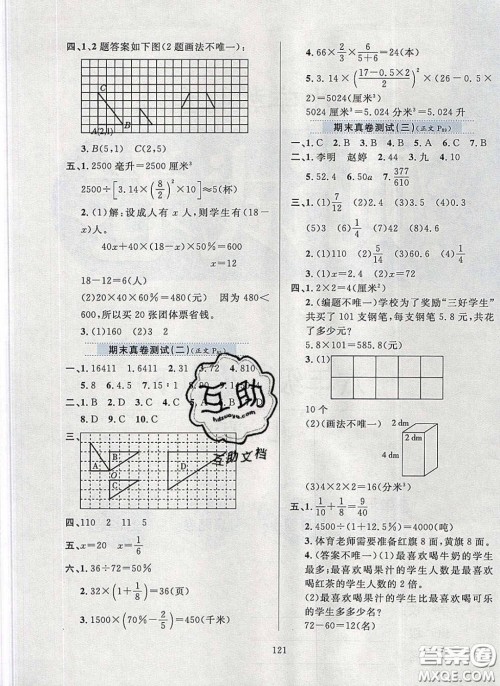 四、1、2题答案如下图(2题画法不唯一):
C
A(2,1)
B
3. B(5,1)　C(2,5)
五、1. 2500毫升=2500厘米³
2500÷[3.14×(8/2)²×10]≈5(杯)
2. (1)解:设成人有x人,则学生有(18-x)人。
40x+40×(18-x)×50%=600
x=12
18-12=6(人)
(2)20×40×60%=480(元)　因为
600>480,所以买20张团体票省钱。
3. (1)160　(2)3　2
期末真卷测试(二)
一、1. 16411　2. 16411　3. 1.72　4. 810
7. 15　8.
二、1. B　2. A　3. D　4. A
7. D　8. C　9. C　10. B
三、
A
B
O
C
D
四、110　2　11　5
五、x=20
六、1. 36÷72=50%
2. 32×(1+1/8)=36(页)
3. 1500×(70%-2/5)=450(米)
4. 66×2/3×6/(5+6)=24(本)
5. 3.14×((17-0.5×2)/2)²×
5024厘米³=5.024分米³=5.024升
期末真卷测试(三)(正文P85)
一、1. C　2. B　3. D　4. B　5. B　6. A
二、1. 李明　赵婷　2. 43　3. 九　4. 10
5. 52.4　6. 50a　7. 377/610
三、1. (1)7/12　(2)4　(3)0.4　(4)6.8
(5)3　(6)1/4　(7)42　(8)3/4
2. (1)20　(2)5/14　(3)60　(4)1/4
3. (1)122.5　(2)37.5
四、1. 2×2=4(厘米²)
2. (编题不唯一)学校为了奖励“三好学生”
共买了101支钢笔,每支钢笔5.8元,共
花了多少元?
3. (1)
10个
(2)(画法不唯一)
2 dm
2 dm
4 dm
(3)4×2×2=16(立方分米)
五、1. 1/10+1/8=9/40
2. 4500÷(1+12.5%)=4000(吨)
3. 体育老师需要准备红旗8面,黄旗8面。
4. (答案不唯一)(1)最喜欢喝牛奶的学生
人数和最喜欢喝果汁的学生人数是最喜欢
喝红茶的学生人数的2倍。
(2)最喜欢喝果汁的学生比最喜欢喝可乐
的学生多多少名?
72-60=12(名)
121
互助
互助文档
答案圈
MXQE.COM